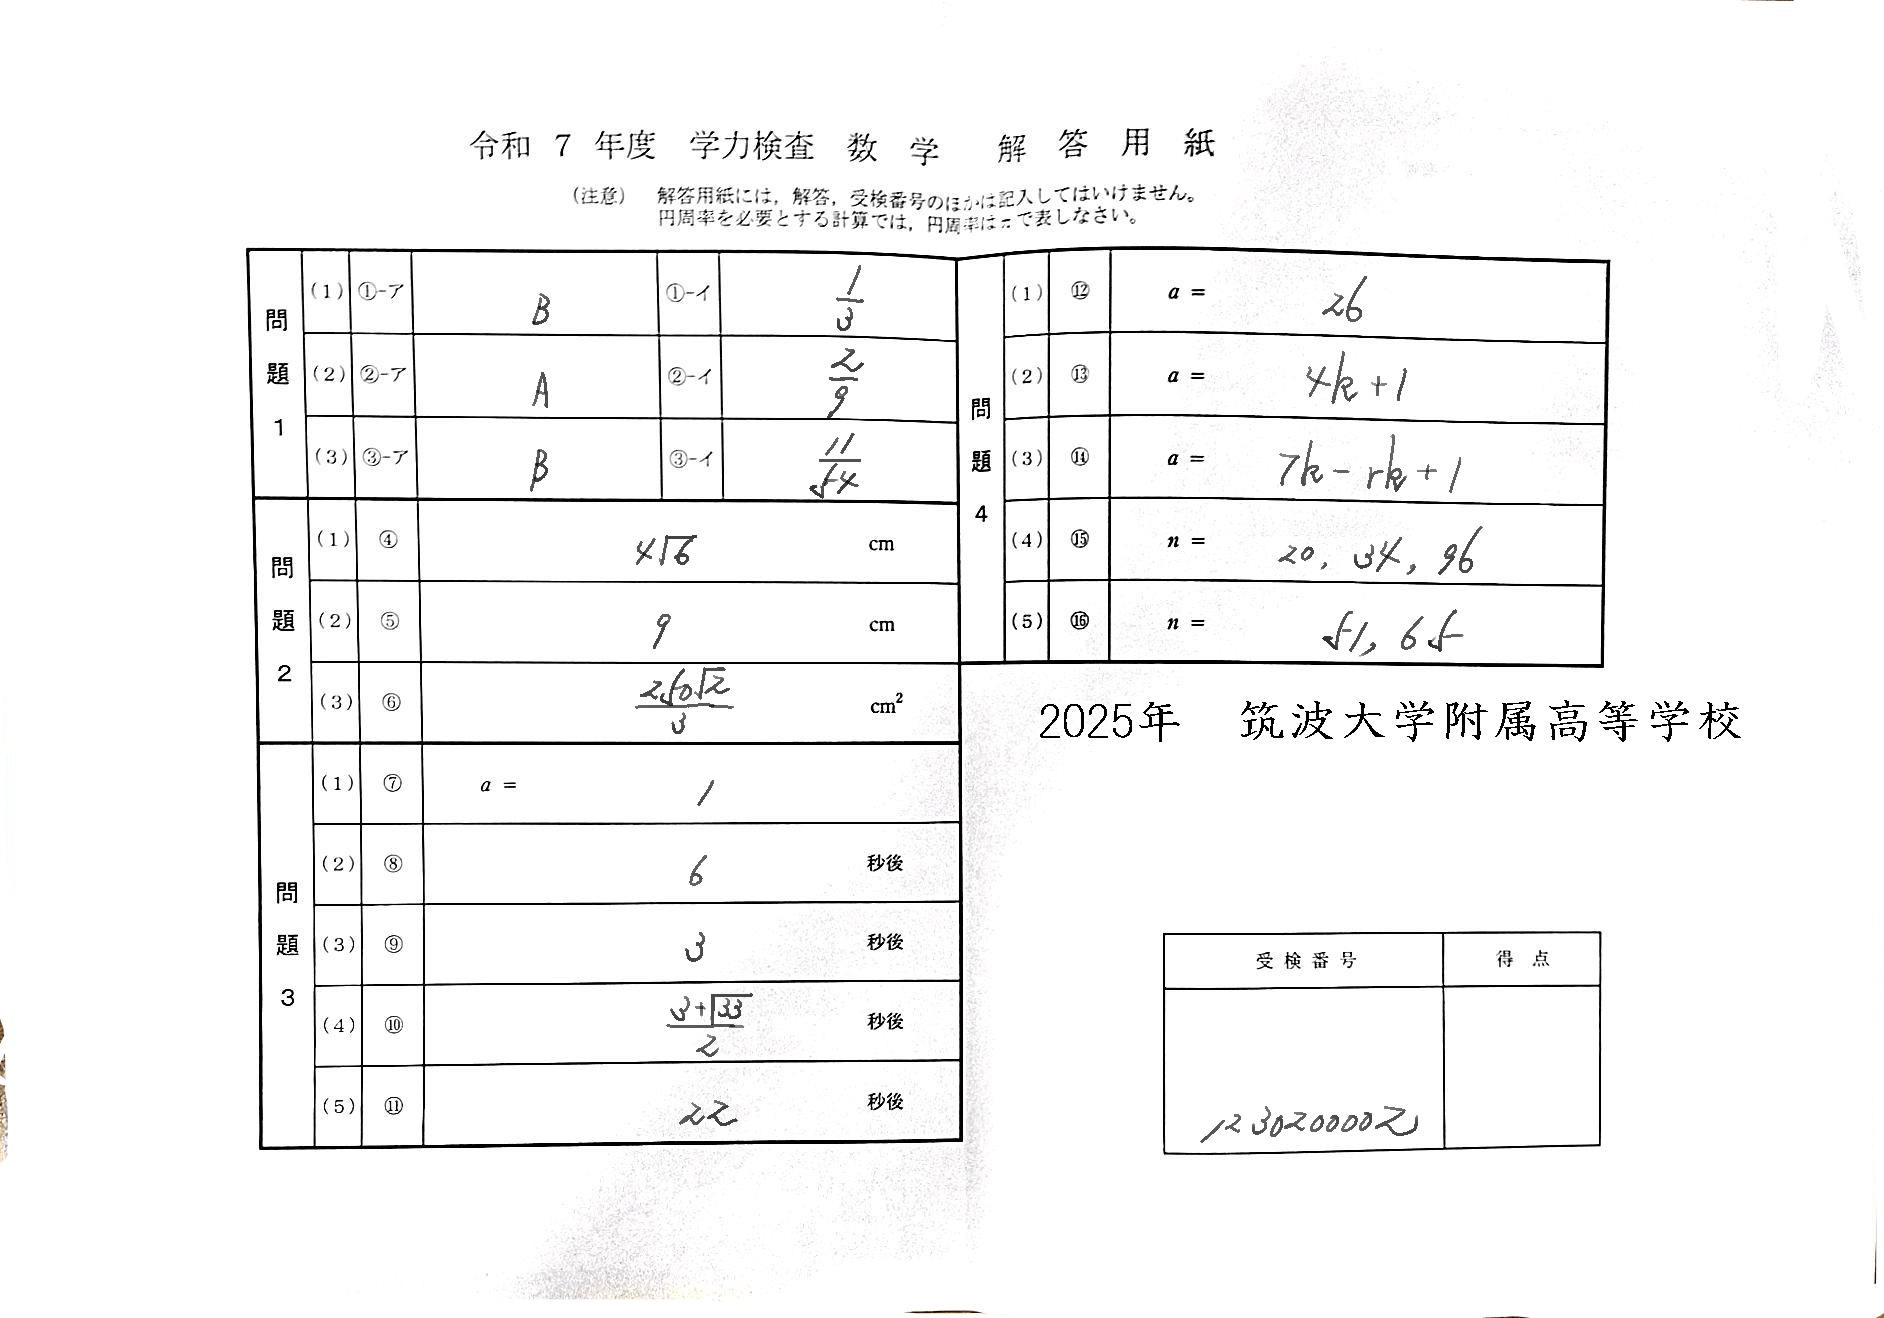 令和 7 年度 学力検査 数学 解答用紙
(注意) 解答用紙には,解答,受検番号のほかは記入してはいけません。
円周率を必要とする計算では,円周率はπで表しなさい。
問題1
(1) ①-ア B ①-イ 1/3
(2) ②-ア A ②-イ 2/9
(3) ③-ア B ③-イ 11/54
問題2
(1) ④ 4√6 cm
(2) ⑤ 9 cm
(3) ⑥ 250√2/3 cm²
問題3
(1) ⑦ a = 1
(2) ⑧ 6 秒後
(3) ⑨ 3 秒後
(4) ⑩ 3+√33/2 秒後
(5) ⑪ 22 秒後
問題4
(1) ⑫ a = 26
(2) ⑬ a = 4k+1
(3) ⑭ a = 7k-rk+1
(4) ⑮ n = 20, 34, 96
(5) ⑯ n = 51, 65
2025年 筑波大学附属高等学校
受検番号 得点
1230200002